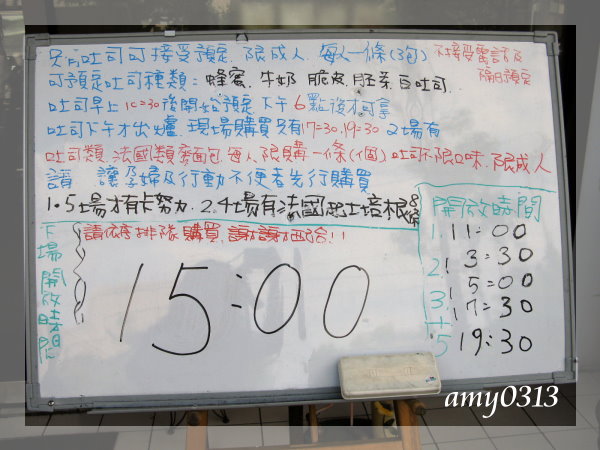 只有吐司可接受預定.限成人.每人一條(3包) 不接受電話及隔日預定
可預定吐司種類:蜂蜜.牛奶.脆皮.胚芽.白吐司.
吐司早上10=30後開始預定 下午6點後才可拿
吐司下午才出爐 現場購買只有17=30.19=30 2場有
吐司類.法國類麥面包每人限購一條(個)吐司不限口味.限成人
請 讓孕婦及行動不便者先行購買
1.5場才有卡努力.2.4場有法國芝士培根
請依序排隊購買.謝謝！！
下場開放時間
15:00
開放時間
1. 11:00
2. 13:30
3. 15:00
4. 17:30
5 19:30
amy0313